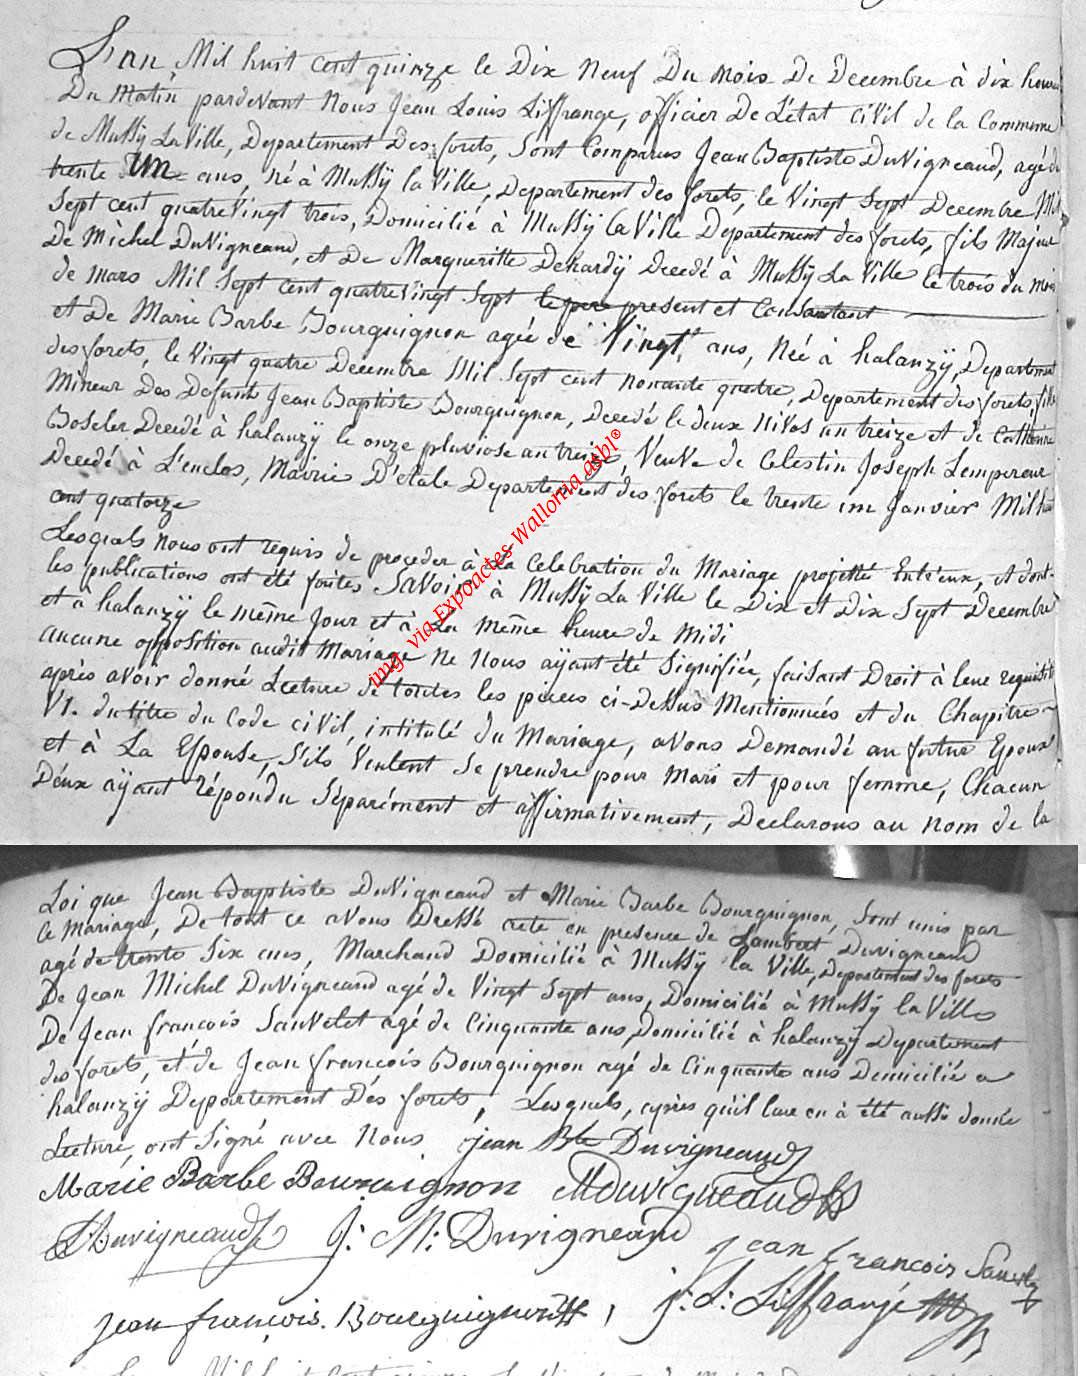 L'an Mil huit cent quinze le Dix Neuf Du mois De Decembre à dix heures
Du Matin pardevant Nous Jean Louis Liffrange, officier De L'état civil de la Commune
de Mussÿ La Ville, Departement Des forets, Sont Comparus Jean Baptiste DuVigneaud, agé de
trente un ans, né à Mussÿ la Ville, Departement des forets, le Vingt Sept Decembre Mil
Sept cent quatre Vingt trois, Domicilié à Mussÿ La Ville Departement des forets, fils Majeur
De Michel DuVigneaud, et De Margueritte Dehardÿ Decedé à Mussÿ La Ville le trois du mois
de mars Mil Sept cent quatre Vingt Sept le pere present et Consantant
et De Marie Barbe Bourguignon agée de Vingt ans, Née à halanzÿ, Departement
des forets, le Vingt quatre Decembre Mil Sept cent nonante quatre, Departement des forets, fille
Mineur Des Defunts Jean Baptiste Bourguignon, decedé le deux Nivos an treize et de Catherine
Boseler Decedé à halanzÿ le onze pluviose an treize, Veuve de Celestin Joseph Lempereur
Decedé à L'enclos, Mairie D'étale Departement des forets le trente un Janvier Mil huit
cent quatorze
Lesquels nous ont requis de proceder à La Celebration du Mariage projetté Entr'eux, et dont
les publications ont été faites Savoir à Mussÿ La Ville le Dix et Dix Sept Decembre
et à halanzÿ le même Jour et à La même heure de Midi
aucune opposition audit Mariage Ne Nous aÿant été Signifiée, faisant Droit à leur requisition
après avoir donné Lecture de toutes les pieces ci-Dessus Mentionnées et du Chapitre
VI. du titre du Code civil, intitulé du Mariage, avons Demandé au futur Epoux
et à La Epouse, S'ils Veulent Se prendre pour Mari et pour femme, Chacun
Deux aÿant répondu Séparément et affirmativement, Declarons au nom de la
Loi que Jean Baptiste DuVigneaud et Marie Barbe Bourguignon, Sont unis par
le Mariage, De tout ce avons Dressé acte en presence de Lambert Duvigneaud
agé de trente Six ans, Marchand Domicilié à Mussÿ la Ville, Departement des forets
De Jean Michel DuVigneaud agé de Vingt Sept ans, Domicilié à Mussÿ la Ville
De Jean françois Sauvelet agé de Cinquante ans, Domicilié à halanzÿ Departement
des forets, et de Jean françois Bourguignon agé de Cinquante ans Demicilié a
halanzÿ Departement Dés forets, Lesquels, après qu'il leur en à été aussi donné
Lecture, ont Signé avec Nous jean Bte Duvigneaud
Marie Barbe Bourguignon MDuvigneaud
L Duvigneaud J: M: Duvigneaud jean francois Sauvlet
jean françois. Bourguignon, j: L: Liffrange
img. via Expoactes-Wallonia asbl®